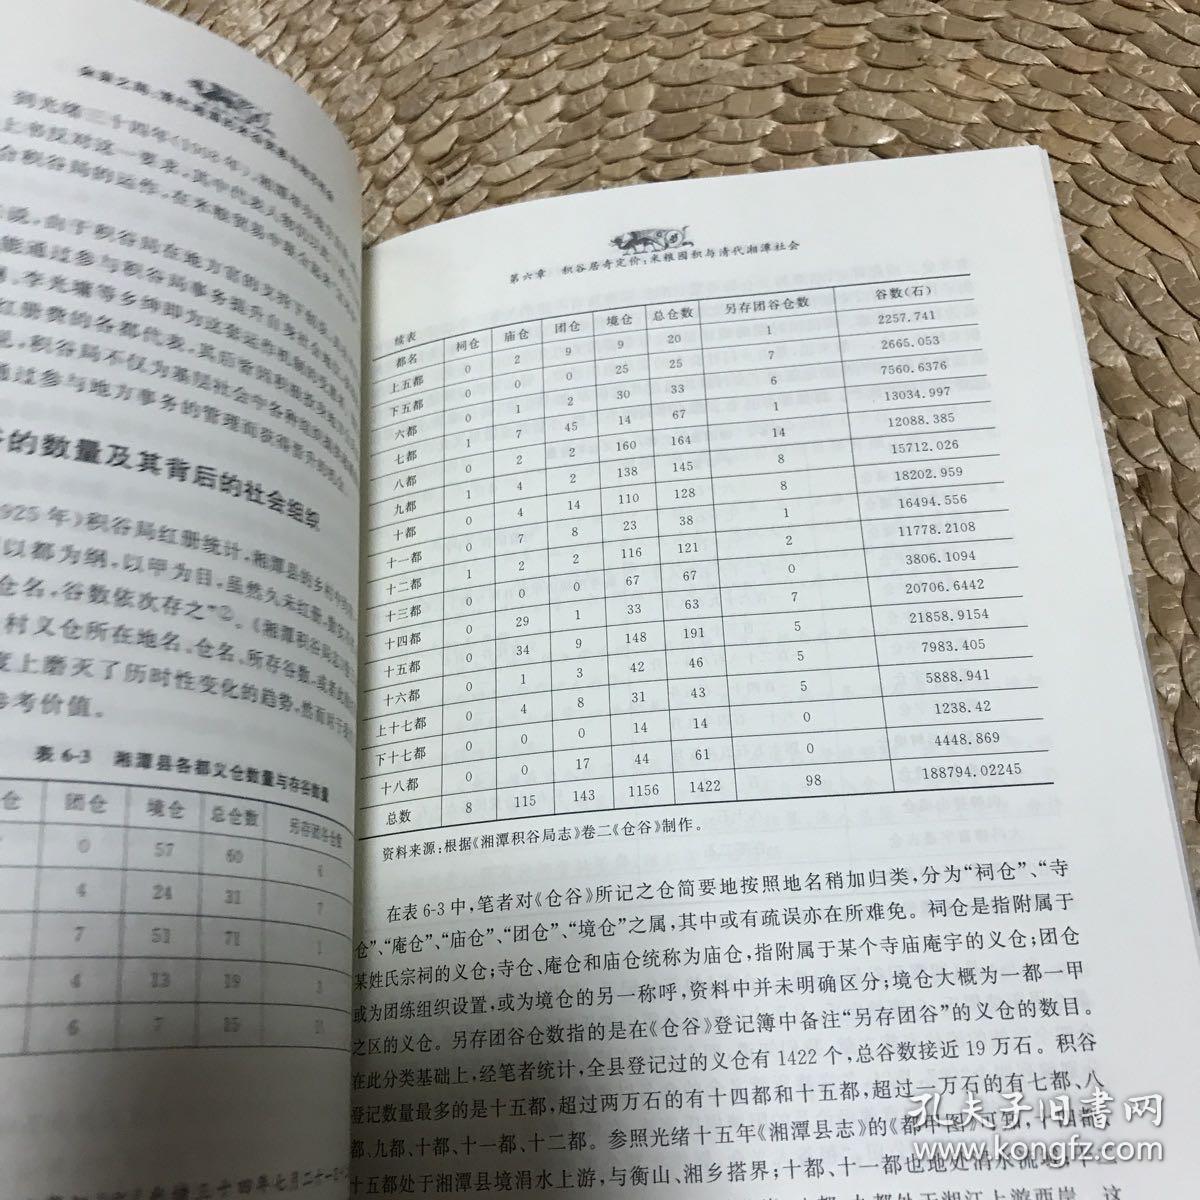 到光绪三十四年(1908年),湘潭
上书反对这一要求,其中代表人物
积谷局的运作,在米粮贸易中
说,由于积谷局在地方官的支持下
能通过参与积谷局事务提升自身社会
李光墉等乡绅即为这套运作机制的
红册费的各都代表,其后皆
积谷局不仅为基层社会中各种
通过参与地方事务的管理而获得晋升
的数量及其背后的社会组织
925年)积谷局红册统计,湘潭县的乡村
以都为纲,以甲为目,虽然久未红册
仓名,谷数依次存之”②。《湘潭积谷局志》
村义仓所在地名、仓名、所存谷数
度上磨灭了历时性变化的趋势,然而对于
参考价值。
表6-3 湘潭县各都义仓数量与存谷数量
仓 团仓 境仓 总仓数 另存团谷仓数
0 57 60 6
4 24 31 7
7 51 71 1
4 13 19 3
6 7 25
三十四年七月二十
第六章 积谷居奇定价:米粮囤积与清代湘潭社会
续表
都名 祠仓 庙仓 团仓 境仓 总仓数 另存团谷仓数 谷数(石)
上五都 0 2 9 9 20 1 2257.741
下五都 0 0 0 25 25 7 2665.053
六都 0 1 2 30 33 6 7560.6376
七都 1 7 45 14 67 1 13034.997
八都 0 2 2 160 164 14 12088.385
九都 1 4 2 138 145 8 15712.026
十都 0 4 14 110 128 8 18202.959
十一都 0 7 8 23 38 1 16494.556
十二都 1 2 2 116 121 2 11778.2108
十三都 0 0 0 67 67 0 3806.1094
十四都 0 29 1 33 63 7 20706.6442
十五都 0 34 9 148 191 5 21858.9154
十六都 0 1 3 42 46 5 7983.405
上十七都 0 4 8 31 43 5 5888.941
下十七都 0 0 0 14 14 0 1238.42
十八都 0 0 17 44 61 0 4448.869
总数 8 115 143 1156 1422 98 188794.02245
资料来源:根据《湘潭积谷局志》卷二《仓谷》制作。
在表6-3中,笔者对《仓谷》所记之仓简要地按照地名稍加归类,分为“祠仓”、“寺
仓”、“庵仓”、“庙仓”、“团仓”、“境仓”之属,其中或有疏误亦在所难免。祠仓是指附属于
某姓氏宗祠的义仓;寺仓、庵仓和庙仓统称为庙仓,指附属于某个寺庙庵宇的义仓;团仓
或为团练组织设置,或为境仓的另一称呼,资料中并未明确区分;境仓大概为一都一甲
之区的义仓。另存团谷仓数指的是在《仓谷》登记簿中备注“另存团谷”的义仓的数目。
在此分类基础上,经笔者统计,全县登记过的义仓有1422个,总谷数接近19万石。积谷
登记数量最多的是十五都,超过两万石的有十四都和十五都,超过一万石的有七都、八
都、九都、十都、十一都、十二都。参照光绪十五年《湘潭县志》的《都甲图》可知,十四都、
十五都处于湘潭县境涓水上游,与衡山、湘乡搭界;十都、十一都也地处涓水流域,
九都处于湘江上游西岸。这
孔夫子旧书网
www.kongfz.com